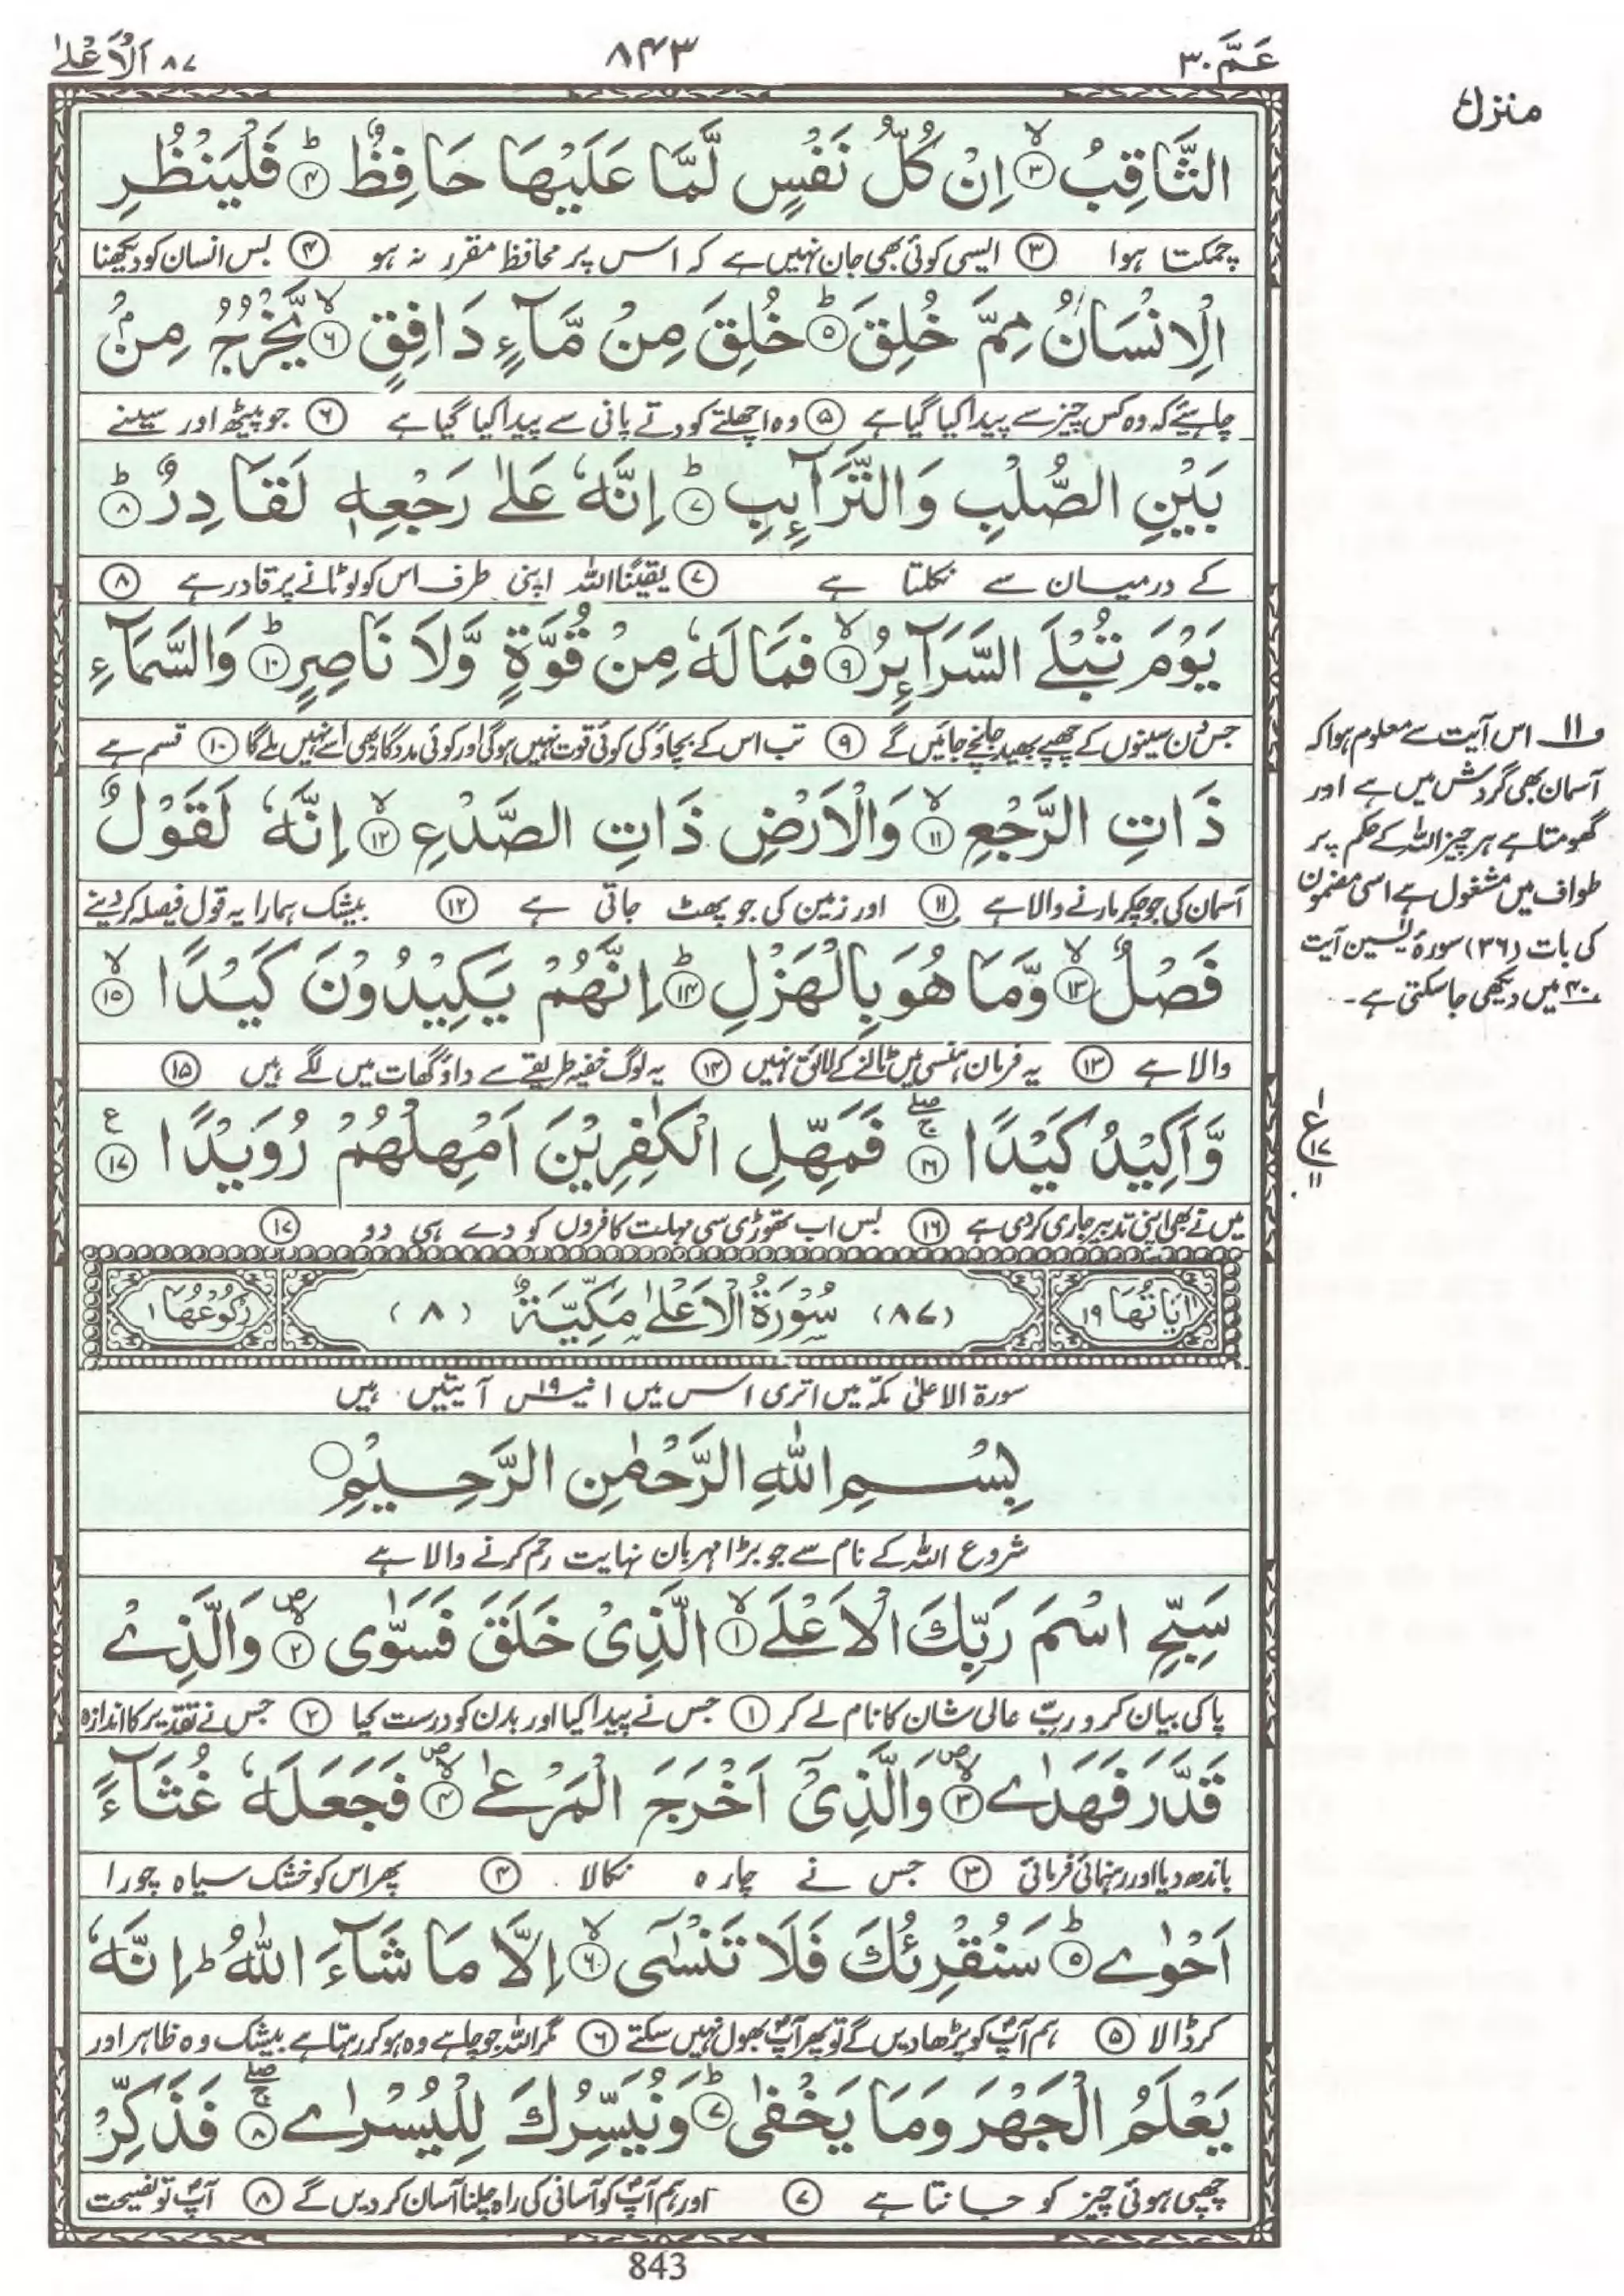 عَمَّ ٣٠
٨٤٣
٨٧ اَلْاَعْلٰی
منزل
الثَّاقِبُ ۙ﴿٣﴾ اِنْ كُلُّ نَفْسٍ لَّمَّا عَلَيْهَا حَافِظٌ ؕ﴿٤﴾ فَلْيَنْظُرِ
چمکتا ہوا ﴿٣﴾ ایسی کوئی بھی جان نہیں ہے کہ اس پر محافظ مقرر نہ ہو ﴿٤﴾ بس انسان کو دیکھنا
الْاِنْسَانُ مِمَّ خُلِقَ ؕ﴿٥﴾ خُلِقَ مِنْ مَّآءٍ دَافِقٍ ۙ﴿٦﴾ يَّخْرُجُ مِنْۢ
چاہیئے کہ وہ کس چیز سے پیدا کیا گیا ہے ﴿٥﴾ وہ اچھلتے کودتے پانی سے پیدا کیا گیا ہے ﴿٦﴾ جو پیٹھ اور سینے
بَيْنِ الصُّلْبِ وَالتَّرَآئِبِ ؕ﴿٧﴾ اِنَّهٗ عَلٰى رَجْعِهٖ لَقَادِرٌ ؕ﴿٨﴾
کے درمیان سے نکلتا ہے ﴿٧﴾ یقیناً اللہ اپنی طرف اس کو لوٹانے پر قادر ہے ﴿٨﴾
يَوْمَ تُبْلَى السَّرَآئِرُ ۙ﴿٩﴾ فَمَا لَهٗ مِنْ قُوَّةٍ وَّلَا نَاصِرٍ ؕ﴿١٠﴾ وَالسَّمَآءِ
جس دن سینوں کے چھپے بھید جانچے جائیں گے ﴿٩﴾ تب اس کے بچاؤ کی کوئی قوت نہیں ہوگی اور کوئی مددگار بھی اسے نہیں ملے گا ﴿١٠﴾ قسم ہے
ذَاتِ الرَّجْعِ ۙ﴿١١﴾ وَالْاَرْضِ ذَاتِ الصَّدْعِ ۙ﴿١٢﴾ اِنَّهٗ لَقَوْلٌ
آسمان کی جو چکر مارنے والا ہے ﴿١١﴾ اور زمین کی جو پھٹ جاتی ہے ﴿١٢﴾ بیشک ہمارا یہ قول فیصلہ کر دینے
فَصْلٌ ۙ﴿١٣﴾ وَّمَا هُوَ بِالْهَزْلِ ؕ﴿١٤﴾ اِنَّهُمْ يَكِيْدُوْنَ كَيْدًا ۙ﴿١٥﴾
والا ہے ﴿١٣﴾ یہ فرمان ہنسی میں ٹالنے کے لائق نہیں ﴿١٤﴾ یہ لوگ خفیہ طریقے سے داؤ گھات میں لگے ہیں ﴿١٥﴾
وَّاَكِيْدُ كَيْدًا ۚۖ﴿١٦﴾ فَمَهِّلِ الْكٰفِرِيْنَ اَمْهِلْهُمْ رُوَيْدًا ع﴿١٧﴾
میں نے بھی اپنی تدبیر جاری کر دی ہے ﴿١٦﴾ بس اب تھوڑی سی مہلت کافروں کو دے ہی دو ﴿١٧﴾
اٰيَاتُهَا ١٩ (٨٧) سُوْرَةُ الْاَعْلٰى مَكِّيَّةٌ (٨) رُكُوْعُهَا ١
سورۃ الاعلیٰ مکہ میں اتری اس میں انیس ۱۹ آیتیں ہیں
بِسْمِ اللّٰهِ الرَّحْمٰنِ الرَّحِيْمِ
شروع اللہ کے نام سے جو بڑا مہربان نہایت رحم کرنے والا ہے
سَبِّحِ اسْمَ رَبِّكَ الْاَعْلَى ۙ﴿١﴾ الَّذِىْ خَلَقَ فَسَوّٰى ۪ۙ﴿٢﴾ وَالَّذِىْ
پاکی بیان کرو ربّ عالی شان کا نام لے کر ﴿١﴾ جس نے پیدا کیا اور بدن کو درست کیا ﴿٢﴾ جس نے تقدیر کا اندازہ
قَدَّرَ فَهَدٰى ۪ۙ﴿٣﴾ وَالَّذِىْۤ اَخْرَجَ الْمَرْعٰى ۪ۙ﴿٤﴾ فَجَعَلَهٗ غُثَآءً
باندھ دیا اور رہنمائی فرمائی ﴿٣﴾ جس نے چارہ نکالا ﴿٤﴾ پھر اس کو خشک سیاہ چورا
اَحْوٰى ؕ﴿٥﴾ سَنُقْرِئُكَ فَلَا تَنْسٰٓى ۙ﴿٦﴾ اِلَّا مَا شَآءَ اللّٰهُ ؕ اِنَّهٗ
کر ڈالا ﴿٥﴾ ہم آپؐ کو پڑھا دیں گے تو پھر آپؐ بھول نہیں سکتے ﴿٦﴾ مگر اللہ جو چاہے وہ ہو کر رہتا ہے بیشک وہ ظاہر اور
يَعْلَمُ الْجَهْرَ وَمَا يَخْفٰى ؕ﴿٧﴾ وَنُيَسِّرُكَ لِلْيُسْرٰى ۚۖ﴿٨﴾ فَذَكِّرْ
چھپی ہوئی چیز کو جانتا ہے ﴿٧﴾ اور ہم آپؐ کو آسانی کی راہ چلنا آسان کر دیں گے ﴿٨﴾ آپؐ تو نصیحت
و۱۱ اس آیت سے معلوم ہوا کہ
آسمان بھی گردش میں ہے اور
گھومتا ہے ہر چیز اللہ کے حکم پر
طواف میں مشغول ہے اسی مضمون
کی بات (۳۶) سورۂ یٰسین آیت
۴۰ میں دیکھی جا سکتی ہے۔
١
ع
١٧
١١
843